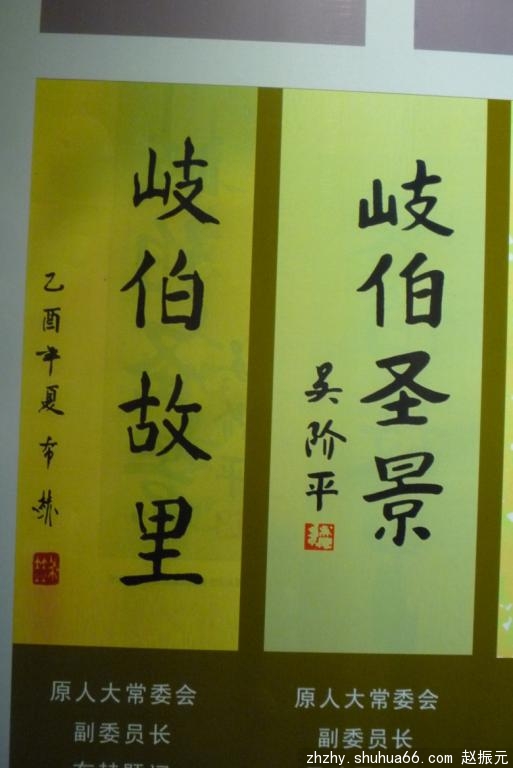 岐伯故里
乙酉年夏 布赫
原人大常委会
副委员长
布赫题词
岐伯圣景
吴阶平
原人大常委会
副委员长
zhzhy.shuhua66.com 赵振元